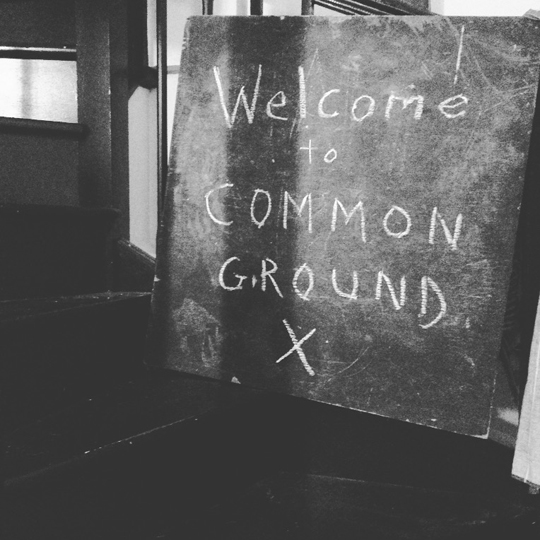 Welcome
to
COMMON
GROUND.
X